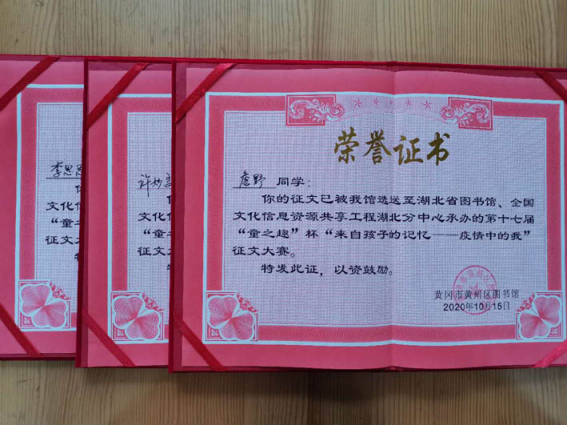 李思
你
文化信息
“童之趣
征文大
特
许妙
你
文化信
“童之
征文大
特
荣誉证书
詹野 同学：
你的征文已被我馆选送至湖北省图书馆、全国
文化信息资源共享工程湖北分中心承办的第十七届
“童之趣”杯“来自孩子的记忆——疫情中的我”
征文大赛。
特发此证，以资鼓励。
黄冈市黄州区图书馆
2020年10月15日